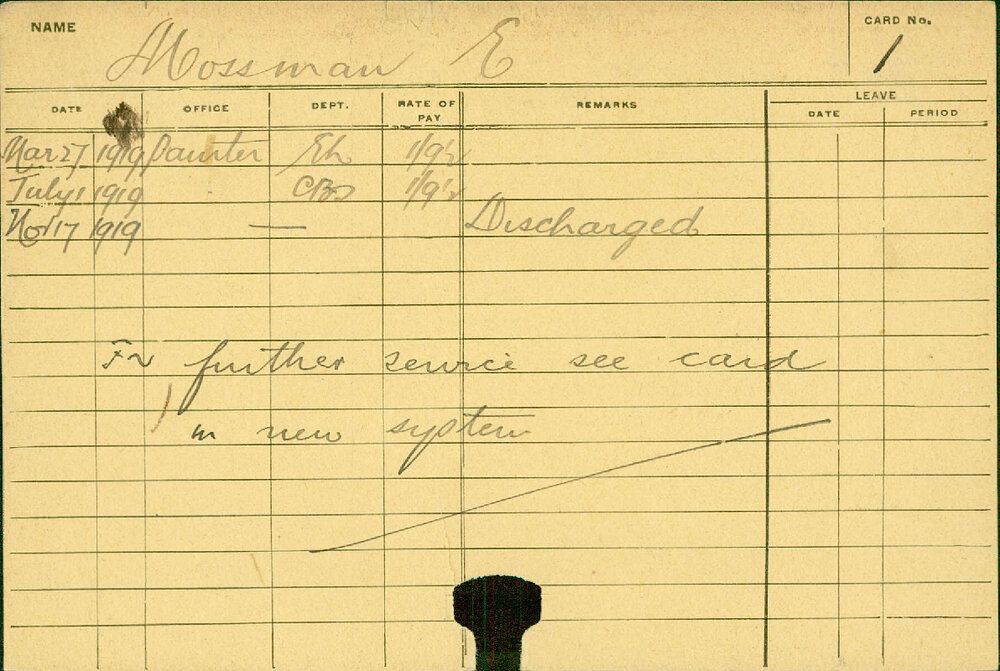 NAME Mossman E CARD No. 1
DATE OFFICE DEPT. RATE OF PAY REMARKS LEAVE
DATE PERIOD
Mar 27 1919 Painter Eh 1/9½
July 1 1919 CBD 1/9½
Nov 17 1919 — Discharged
For further service see card
in new system